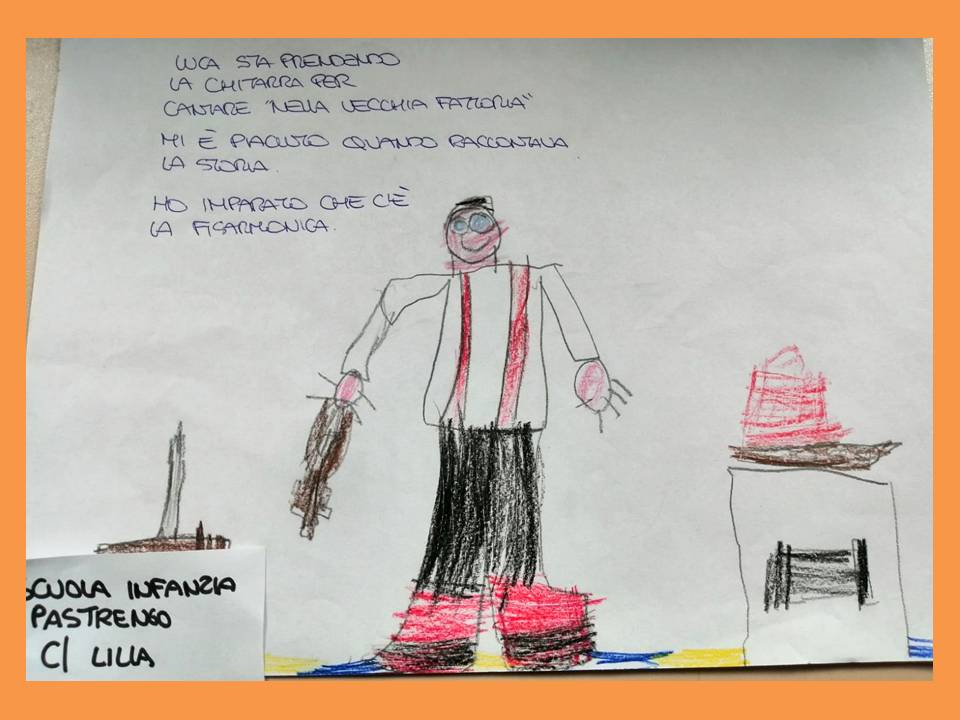 LUCA STA PRENDENDO
LA CHITARRA PER
CANTARE "NELLA VECCHIA FATTORIA"
MI È PIACIUTO QUANDO RACCONTAVA
LA STORIA.
HO IMPARATO CHE C'È
LA FISARMONICA.
SCUOLA INFANZIA
PASTRENGO
C/ LILLA